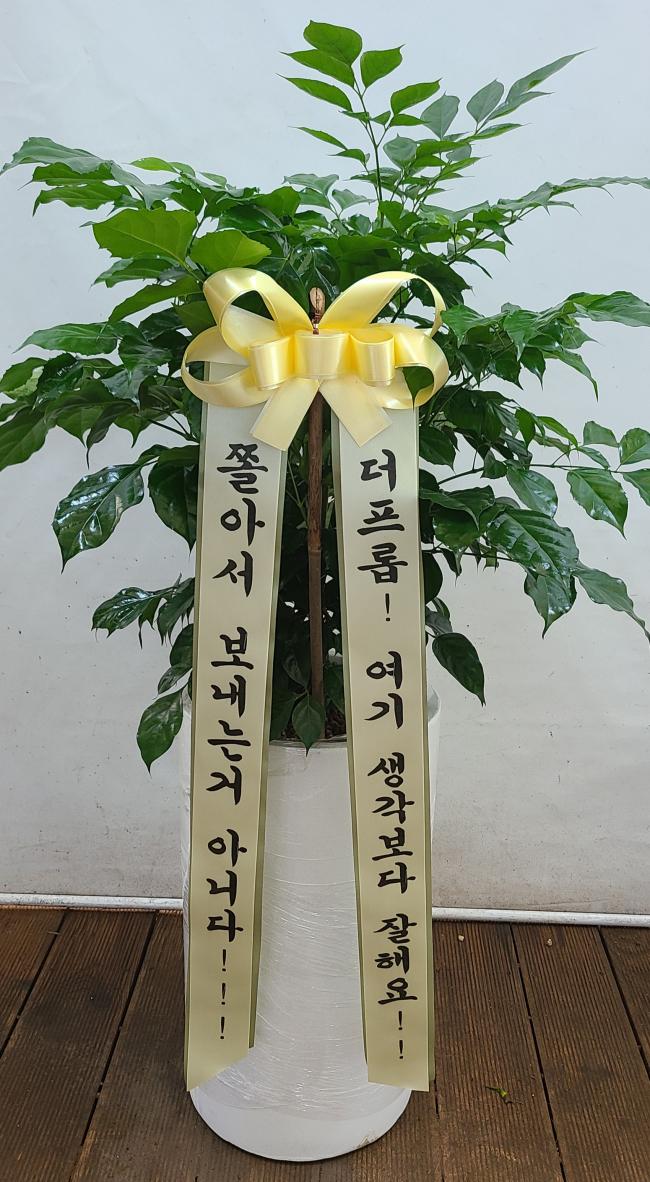 더프룹! 여기 생각보다 잘해요!!
쫄아서 보내는거 아니다!!!